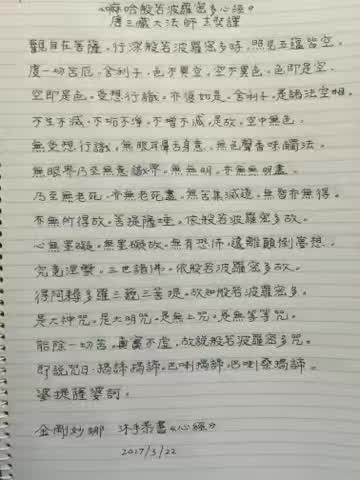 《嘛哈般若波羅蜜多心經》
唐三藏大法師玄奘譯
觀自在菩薩。行深般若波羅蜜多時。照見五蘊皆空。
度一切苦厄。舍利子。色不異空。空不異色。色即是空。
空即是色。受想行識。亦復如是。舍利子。是諸法空相。
不生不滅。不垢不淨。不增不減。是故。空中無色。
無受想行識。無眼耳鼻舌身意。無色聲香味觸法。
無眼界乃至無意識界。無無明。亦無無明盡。
乃至無老死。亦無老死盡。無苦集滅道。無智亦無得。
亦無所得故。菩提薩埵。依般若波羅蜜多故。
心無罣礙。無罣礙故。無有恐怖。遠離顛倒夢想。
究竟涅槃。三世諸佛。依般若波羅蜜多故。
得阿耨多羅三藐三菩提。故知般若波羅蜜多。
是大神咒。是大明咒。是無上咒。是無等等咒。
能除一切苦。真實不虛。故說般若波羅蜜多咒。
即說咒曰。揭諦揭諦。巴喇揭諦。巴喇桑揭諦。
婆提薩婆訶。
金剛妙娜 沐手恭書《心經》
2017/3/22